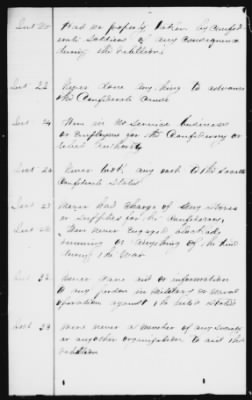 Had no property taken by Confed
erate Soldiers of any consequence
during the rebellion
Never done any thing to advance
the Confederate Cause
Was in no service business
or employee for the Confederacy or
rebel authority
Never took any oath to the
Confederate States
Never had charge of any stores
or supplies for the Confederacy
Was never engaged blockade
running or anything of the kind
during the war
Never gave aid or information
to any person in military or naval
operation against the United States
Was never a member of any society
or any other organization to aid the
rebellion